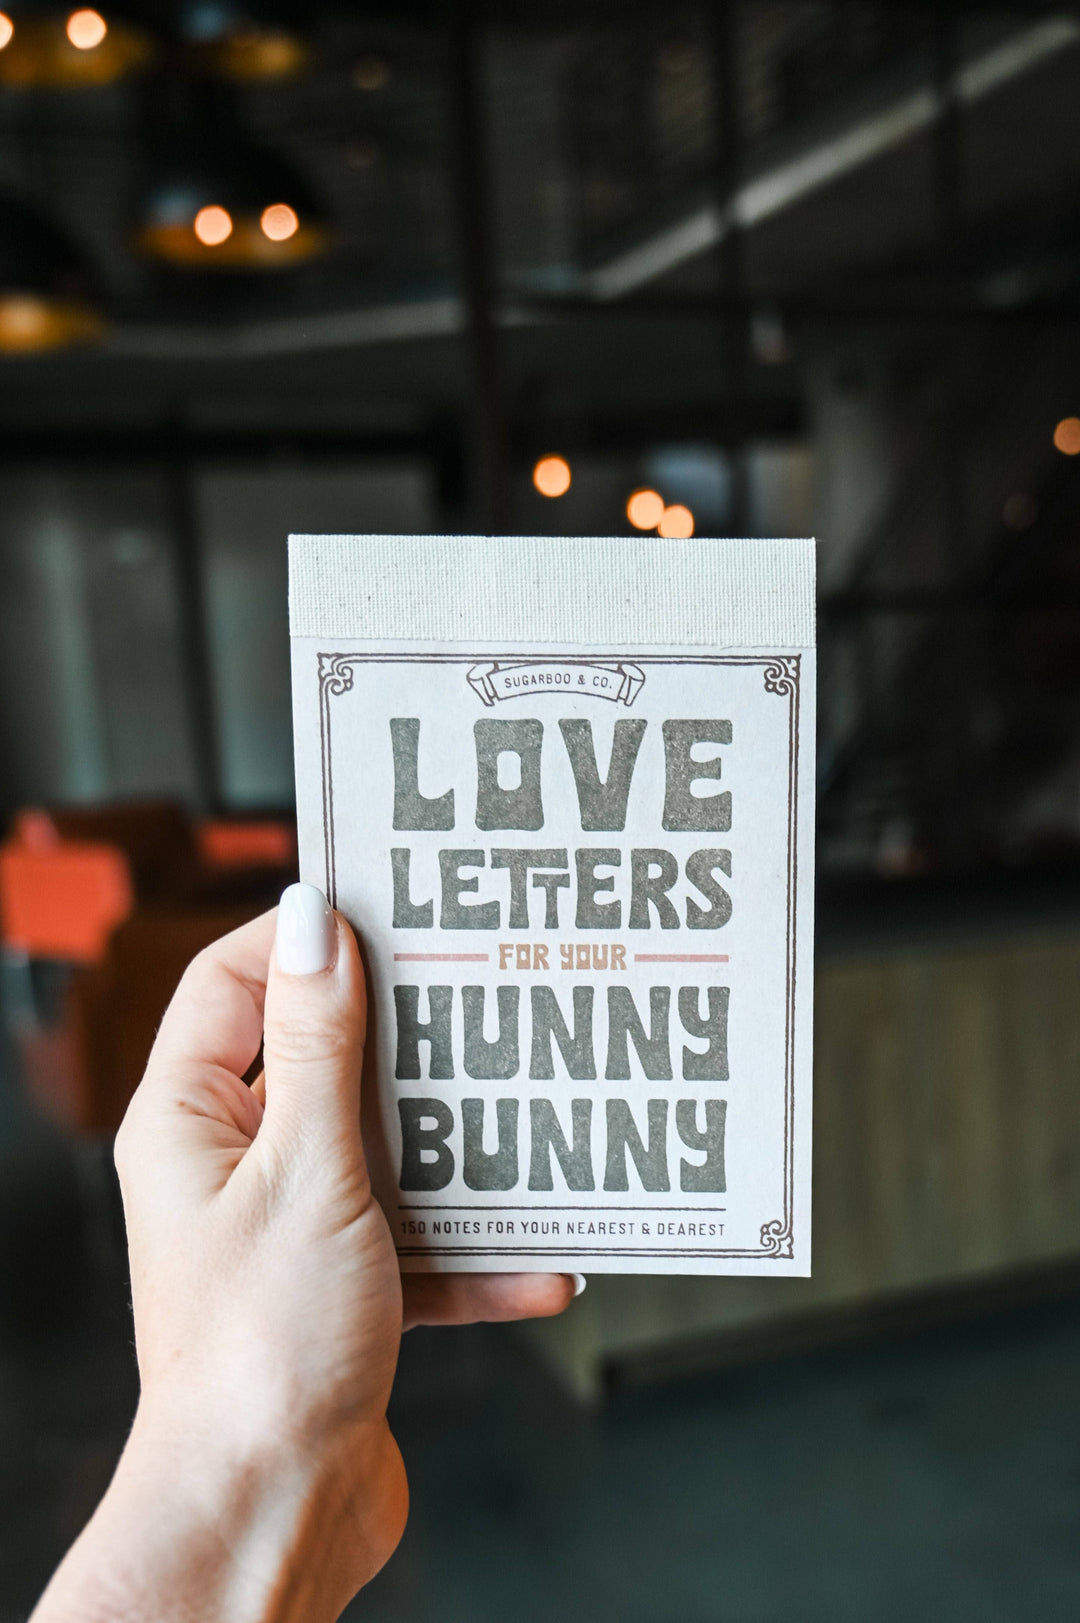 SUGARBOO & CO.
LOVE
LETTERS
FOR YOUR
HUNNY
BUNNY
150 NOTES FOR YOUR NEAREST & DEAREST